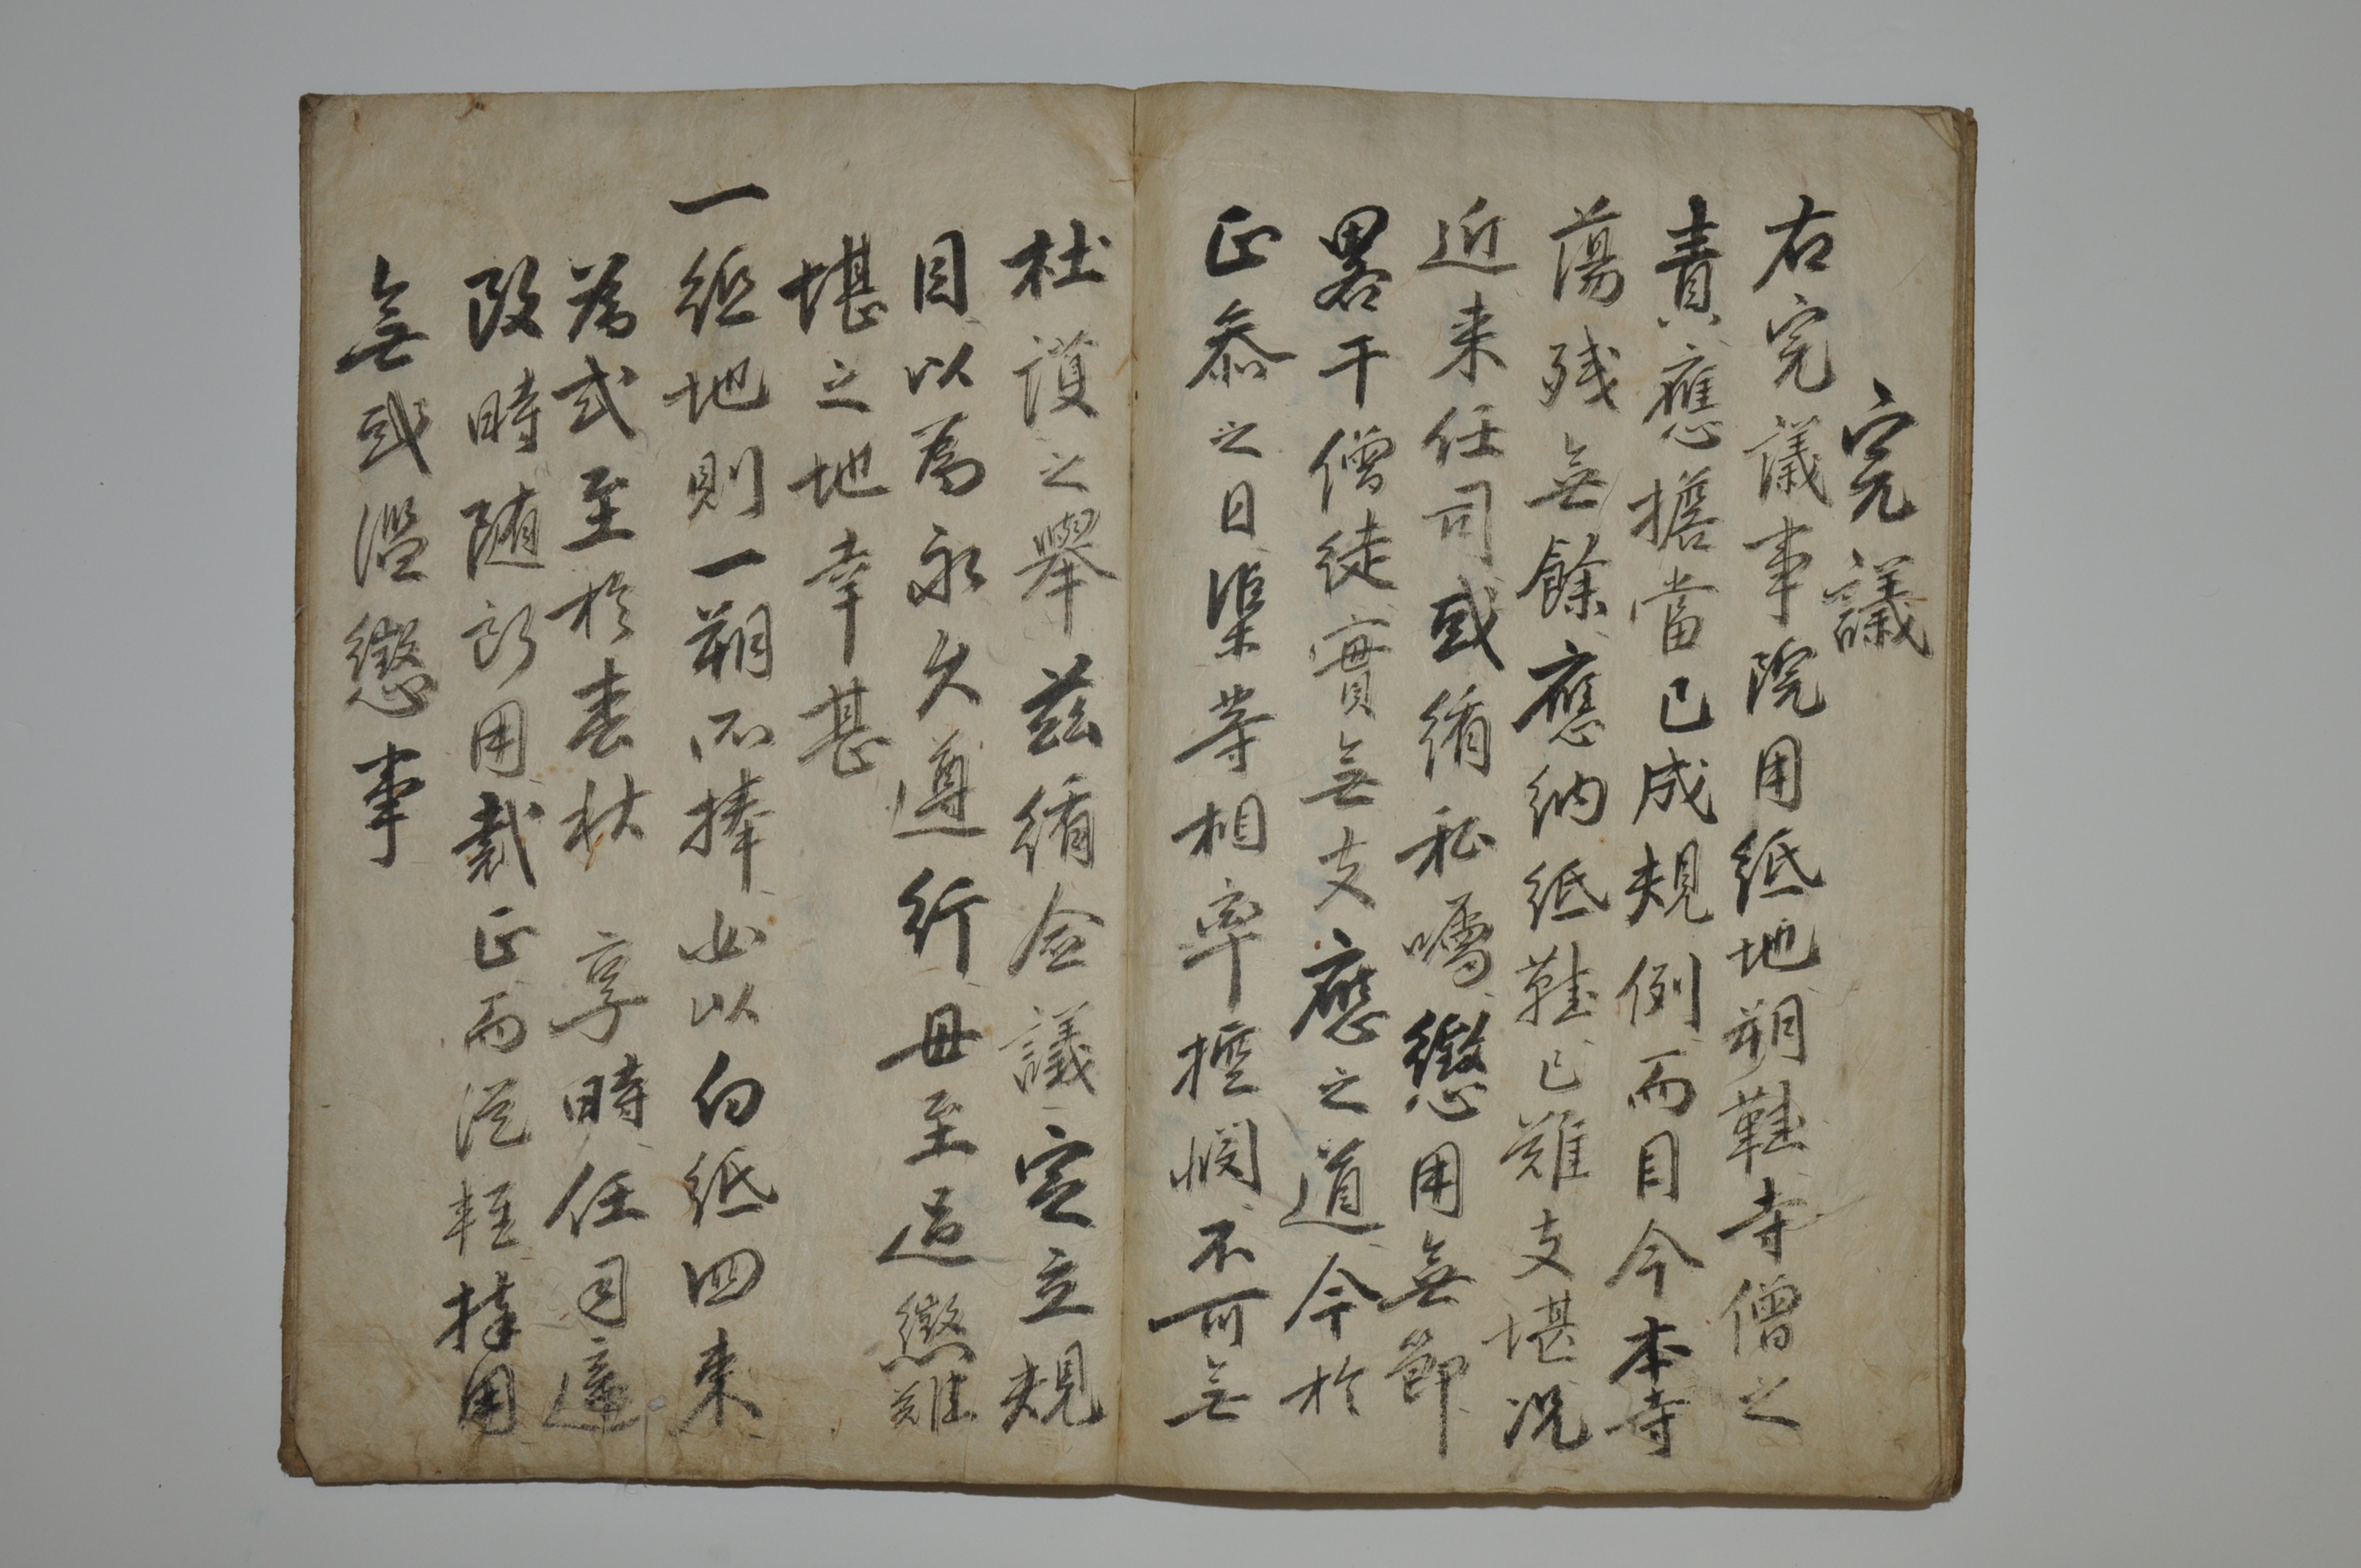 完議
右完議事院用紙地朔鞋寺僧之
責應擔當已成規例而目今本寺
蕩殘無餘應納紙鞋已難支堪况
近来任司或緣私囑懲用無節
畧干僧徒實無支應之道今於
正叅之日渠等相率擡憫不可無
杜護之擧玆緣僉議完立規
目以爲永久遵行毋至過懲難
堪之地幸甚
一紙地則一朔所捧必以白紙四束
爲式至於春秋享時任司遞
改時随所用裁正而從輕捧用
無或濫懲事